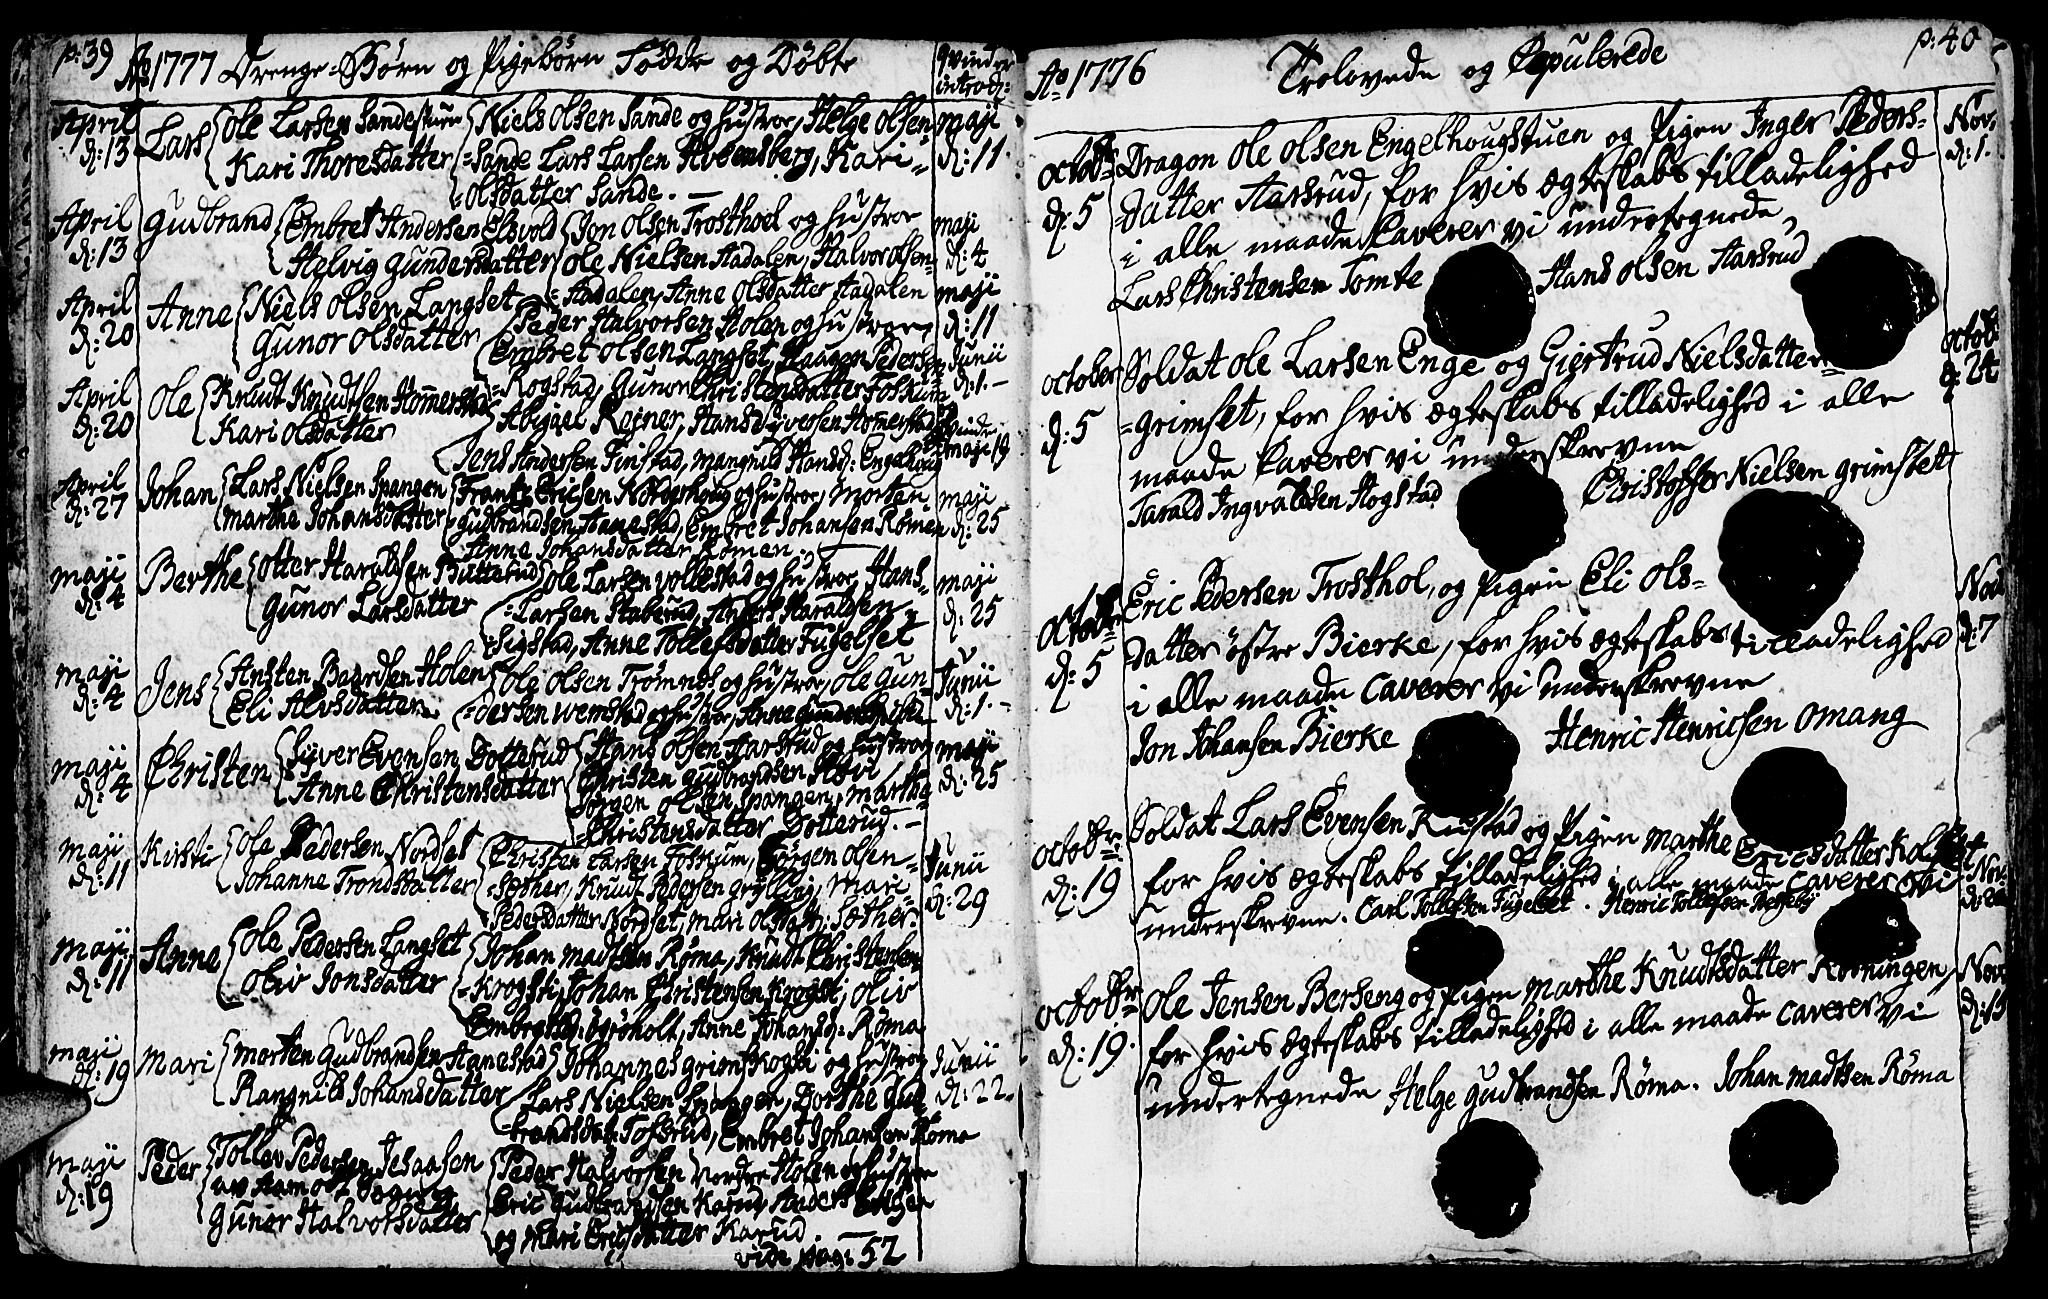 p: 39 Ao 1777 Drenge-Børn og Pigebørn Fødde og Døbte
Qvinder introd:
April d: 13 Lars
Ole Larsen Sandestuen
Kari Thoresdatter
Niels Olsen Sande og hustroe, Helge Olsen
Sande Lars Larsen Kari
Olsdatter Sande.
maji d: 11.
April d: 13 Gudbrand
Embret Andersen Elsvold
Helvig Gundersdatter
Jon Olsen Trosthoel og hustroe
Ole Nielsen Aadalen, Halvor Olsen
Aadalen, Anne Olsdatter Aadalen
maji d: 4
April d: 20 Anne
Niels Olsen Langset
Gunor Olsdatter
Peder Halvorsen Holen og hustroe,
Embret Olsen Langset, Haagen Pedersen
Rogstad, Gunor Christensdatter Foskum
maji d: 11
April d: 20 Ole
Knudt Knudtsen Hommerstad
Kari Olsdatter
Abigael Rejner, Hans Syversen Homerstad
Jens Andersen Finstad, Mangnild Hansd: Engelhoug
Junii d: 1.
April d: 27 Johan
Lars Nielsen Spangen
Marthe Johansdatter
Frantz Ericsen Norderhoug og hustroe, Morten
Gudbrandsen Aanestad, Embret Johansen Römen
Anne Johansdatter Römen.
maji d: 25
maji d: 4 Berthe
Otter Haraldsen Butterud
Gunor Larsdatter
Ole Larsen Vollestad og hustroe, Hans
Larsen Staberud, Anders Haraldsen
Sigstad, Anne Tollefsdatter Fugelset
maji d: 25
maji d: 4 Jens
Ansten Baardsen Holen
Eli Alvsdatter
Ole Olsen Trömnes og hustroe, Ole Gun-
dersen Wemstad og hustroe, Anne
Junii d: 1.
maji d: 4 Christen
Syver Evensen Dotterud
Anne Christensdatter
Hans Olsen Aarsrud og hustroe
Christen Gudbrandsen Hovi,
Jørgen Olsen Spangen, Marthe
Christensdatter Dotterud.
maji d: 25
maji d: 11 Kirsti
Ole Pedersen Nordset
Johanne Trondsdatter
Christen Larsen Foskum, Jörgen Olsen
Sæther, Knudt Pedersen Grylling, Mari
Pedersdatter Nordset, Mari Olsdatt: Sæther.
Junii d: 29
maji d: 11 Anne
Ole Pedersen Langset
Oliv Jonsdatter
Johan Madtsen Röma, Knudt Christensen
Krogsti, Johan Christensen Krogsti, Oliv
Anne Johansd: Röma
maji d: 19 Mari
Morten Gudbrandsen Aanestad
Rangnild Johansdatter
Johannes Grimskogsti og hustroe
Lars Nielsen Spangen, Dorthe Gud
brandsdat: Tofsrud, Embret Johansen Röma
Junii d: 22.
maji d: 19 Peder
Tollev Pedersen
av Aamodt
Gunor Halvorsdatter
Peder Halvorsen Nordre Holen og hustroe
Eric Gudbrandsen Karud, Anders
og Mari Ericsdatter Karud.
vide pag: 52
Ao 1776 Trolovede og Copulerede p: 40
octobr: d: 5
Dragon Ole Olsen Engelhougstuen og Pigen Inger Peders-
datter Aarsrud, for hvis ægteskabs tilladelighed
i alle maade caverer vi undertegnede
Lars Christensen Tomte Hans Olsen Aarsrud
Nov: d: 1.
october d: 5
Soldat Ole Larsen Enge og Giertrud Nielsdatter
Grimset, for hvis ægteskabs tilladelighed i alle
maade caverer vi underskrevne
Tarald Ingvaldsen Hogstad Christoffer Nielsen Grimstet
octob: d: 24
octobr: d: 5
Eric Pedersen Trosthol, og Pigen Eli Ols-
datter østre Bierke, for hvis ægteskabs tilladelighed
i alle maade caverer vi underskrevne
Jon Johansen Bierke Henric Henricsen Omang
Nov: d: 7
octobr: d: 19
Soldat Lars Evensen Kiustad og Pigen Marthe Ericsdatter
for hvis ægteskabs tilladelighed i alle maade caverer vi
underskrevne. Carl Tollefsen Fugelset. Henric Tollefsen
Nov:
octobr: d: 19.
Ole Jensen Berseng og Pigen Marthe Knudtsdatter Korningen,
for hvis ægteskabs tilladelighed i alle maade caverer vi
undertegnede Helge Gudbrandsen Röma. Johan Madtsen Röma
Nov: d: 15